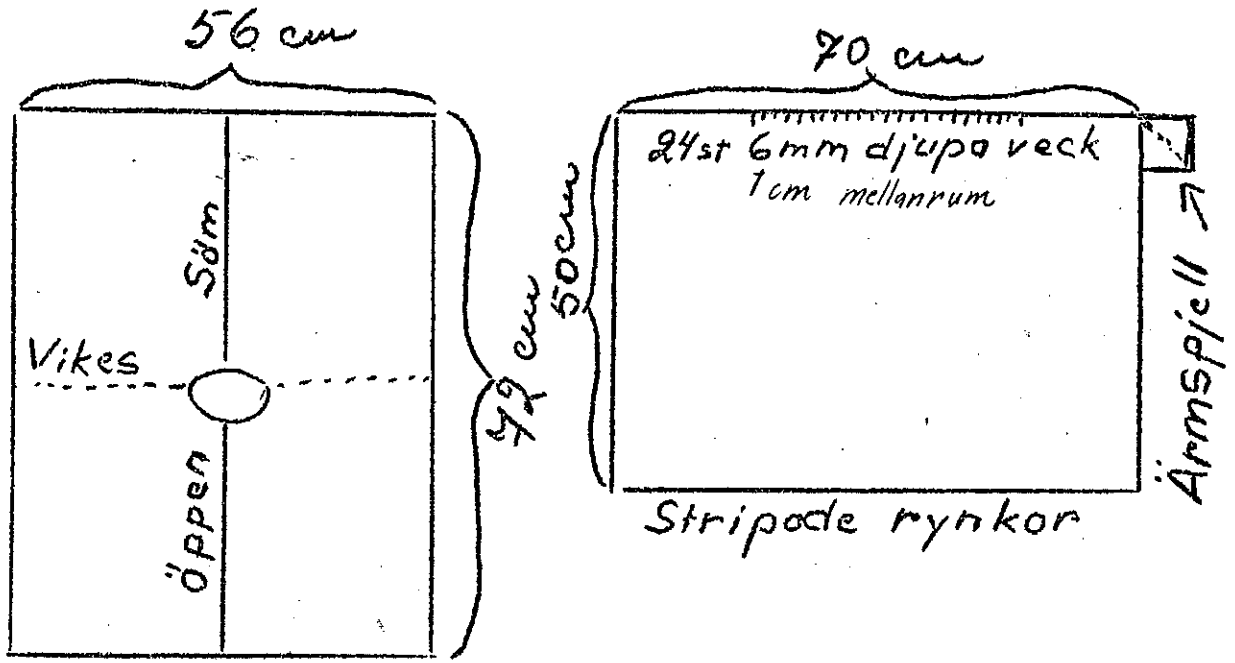 56 cm
Söm
Vikes
Öppen
72 cm
70 cm
24st 6mm djupa veck
1cm mellanrum
50cm
Ärmspjell
Stripade rynkor